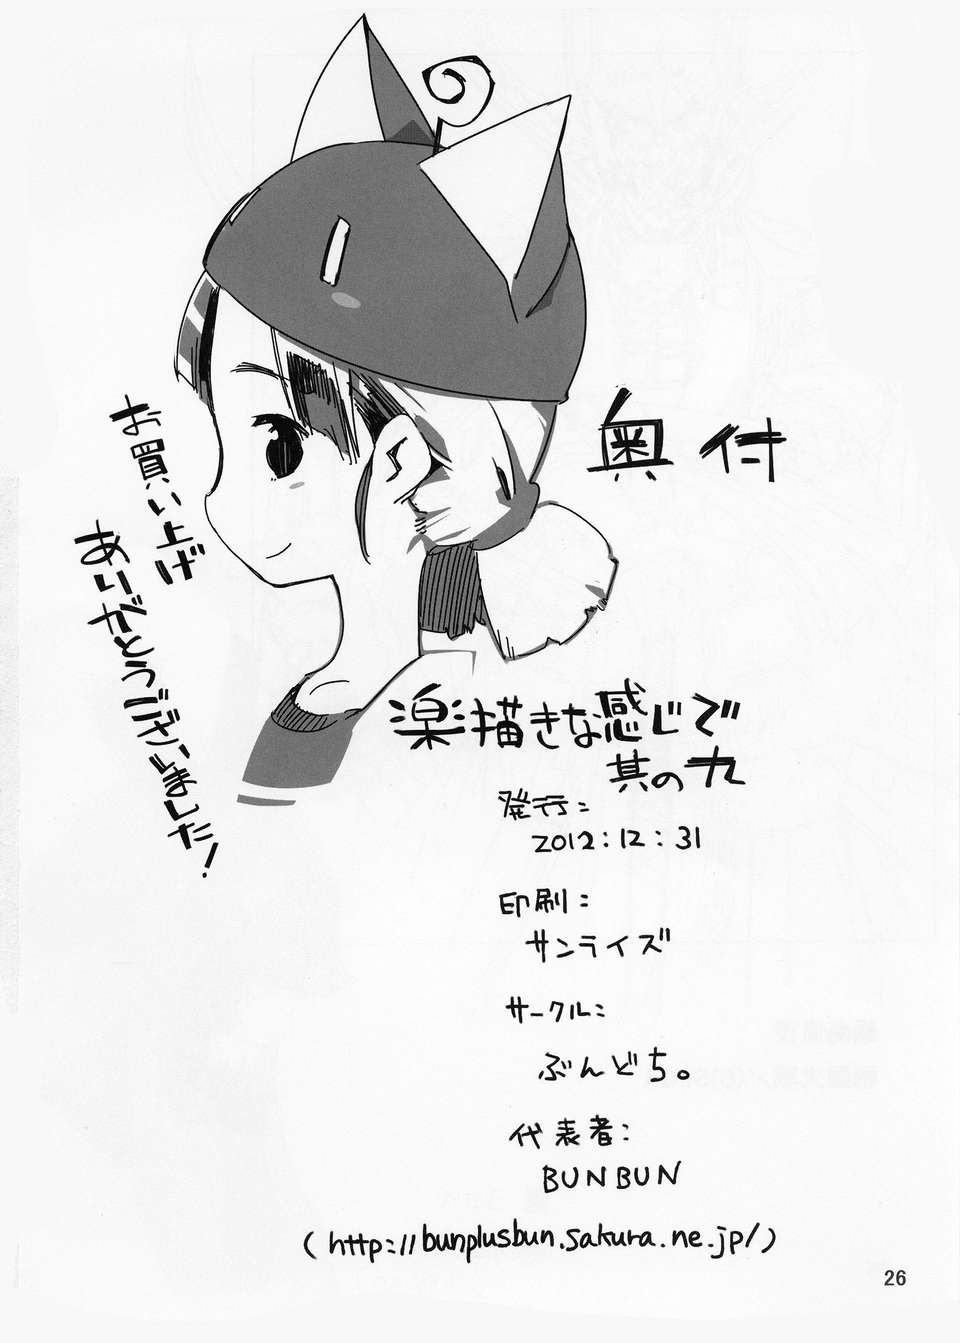 お買い上げ
ありがとうございました!
奥付
楽描きな感じで
其の九
発行:
2012:12:31
印刷:
サンライズ
サークル:
ぶんどち。
代表者:
BUNBUN
(http://bunplusbun.sakura.ne.jp/)
26